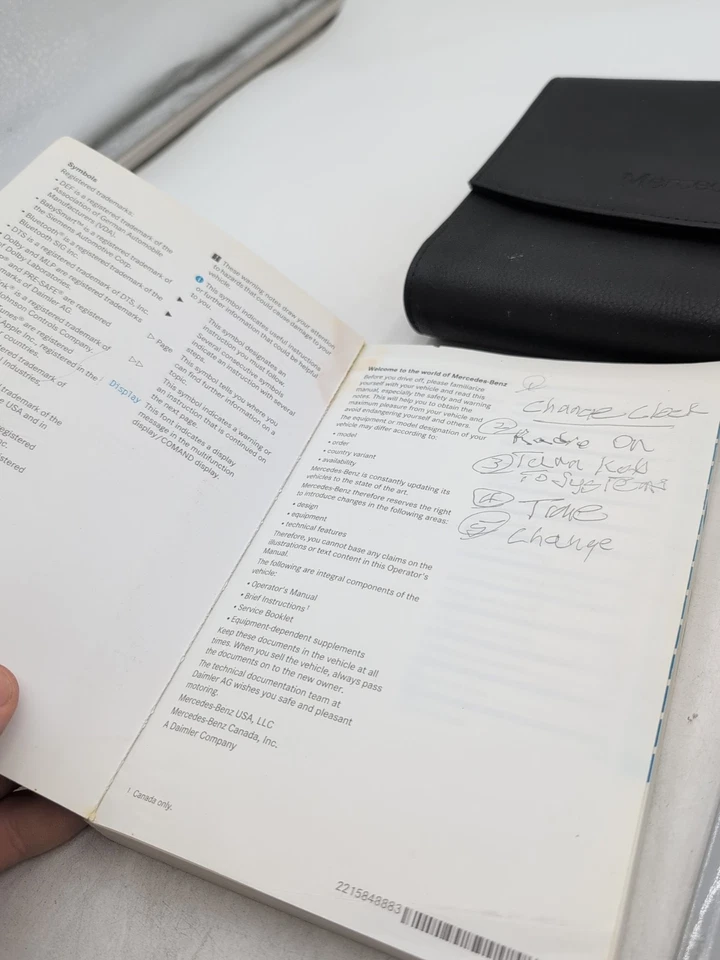 Symbols
Registered trademarks:
• DEF is a registered trademark of the
Association of German Automobile
Manufacturers (VDA).
• BabySmart™ is a registered trademark of
the Siemens Automotive Corp.
• Bluetooth® is a registered trademark of the
Bluetooth SIG Inc.
• DTS is a registered trademark of DTS, Inc.
Dolby and MLP are registered trademarks
of Dolby Laboratories.
and PRE-SAFE® are registered
marks of Daimler AG.
is a registered trademark of
Johnson Controls Company
are registered
Apple Inc., registered in the
countries.
trademark of
Industries,
trademark of the
USA and in
These warning notes draw your attention
to hazards that could cause damage to your
vehicle.
This symbol indicates useful instructions
or further information that could be helpful
to you.
This symbol designates an
instruction you must follow.
Several consecutive symbols
indicate an instruction with several
steps.
▷ Page
This symbol tells you where you
can find further information on a
topic.
▷▷
This symbol indicates a warning or
an instruction that is continued on
the next page.
Display
This font indicates a display
message in the multifunction
display/COMAND display.
Welcome to the world of Mercedes-Benz
Before you drive off, please familiarize
yourself with your vehicle and read this
manual, especially the safety and warning
notes. This will help you to obtain the
maximum pleasure from your vehicle and
avoid endangering yourself and others.
The equipment or model designation of your
vehicle may differ according to:
• model
• order
• country variant
• availability
Mercedes-Benz is constantly updating its
vehicles to the state of the art.
Mercedes-Benz therefore reserves the right
to introduce changes in the following areas:
• design
• equipment
• technical features
Therefore, you cannot base any claims on the
illustrations or text content in this Operator's
Manual.
The following are integral components of the
vehicle:
• Operator's Manual
• Brief Instructions¹
• Service Booklet
• Equipment-dependent supplements
Keep these documents in the vehicle at all
times. When you sell the vehicle, always pass
the documents on to the new owner.
The technical documentation team at
Daimler AG wishes you safe and pleasant
motoring.
Mercedes-Benz USA, LLC
Mercedes-Benz Canada, Inc.
A Daimler Company
¹ Canada only.
2215848883
Change Clock
② Radio On
③ Turn Knob
To System
④ Time
⑤ Change